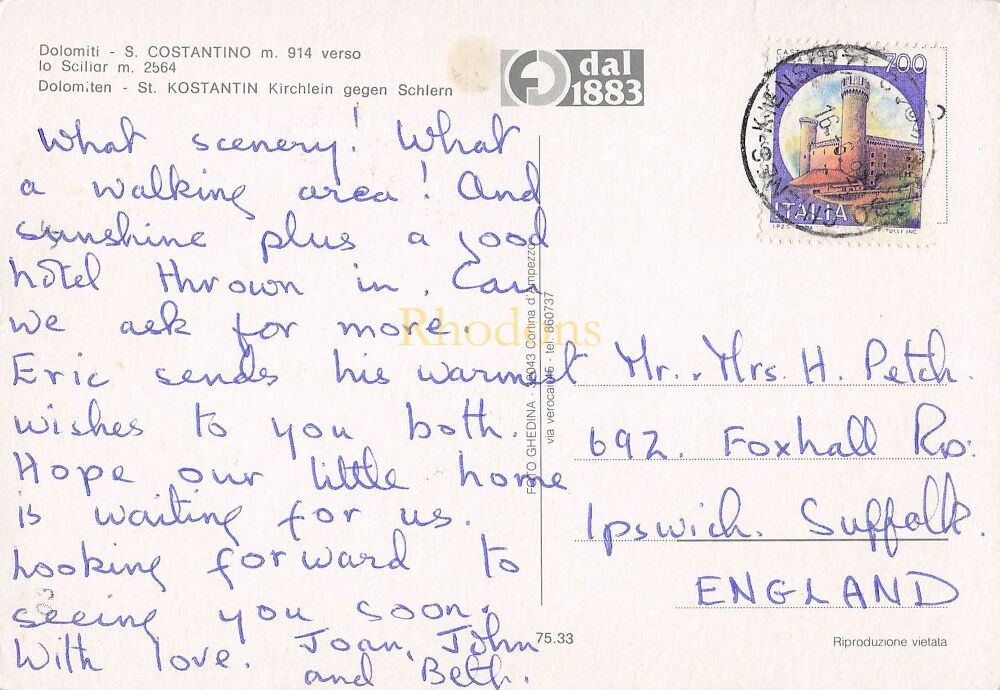 Dolomiti - S. COSTANTINO m. 914 verso
lo Sciliar m. 2564
Dolomiten - St. KOSTANTIN Kirchlein gegen Schlern
dal
1883
700
ITALIA
What scenery! What
a walking area! And
sunshine plus a good
hotel thrown in. Can
we ask for more.
Eric sends his warmest
wishes to you both.
Hope our little home
is waiting for us.
Looking forward to
seeing you soon.
With love. Joan, John
and Beth.
Rhodons
FOTO GHEDINA - 32043 Cortina d'Ampezzo
via verocai 45 - tel. 860737
Mr. & Mrs. H. Petch.
692. Foxhall Rd:
Ipswich. Suffolk.
ENGLAND
75.33
Riproduzione vietata